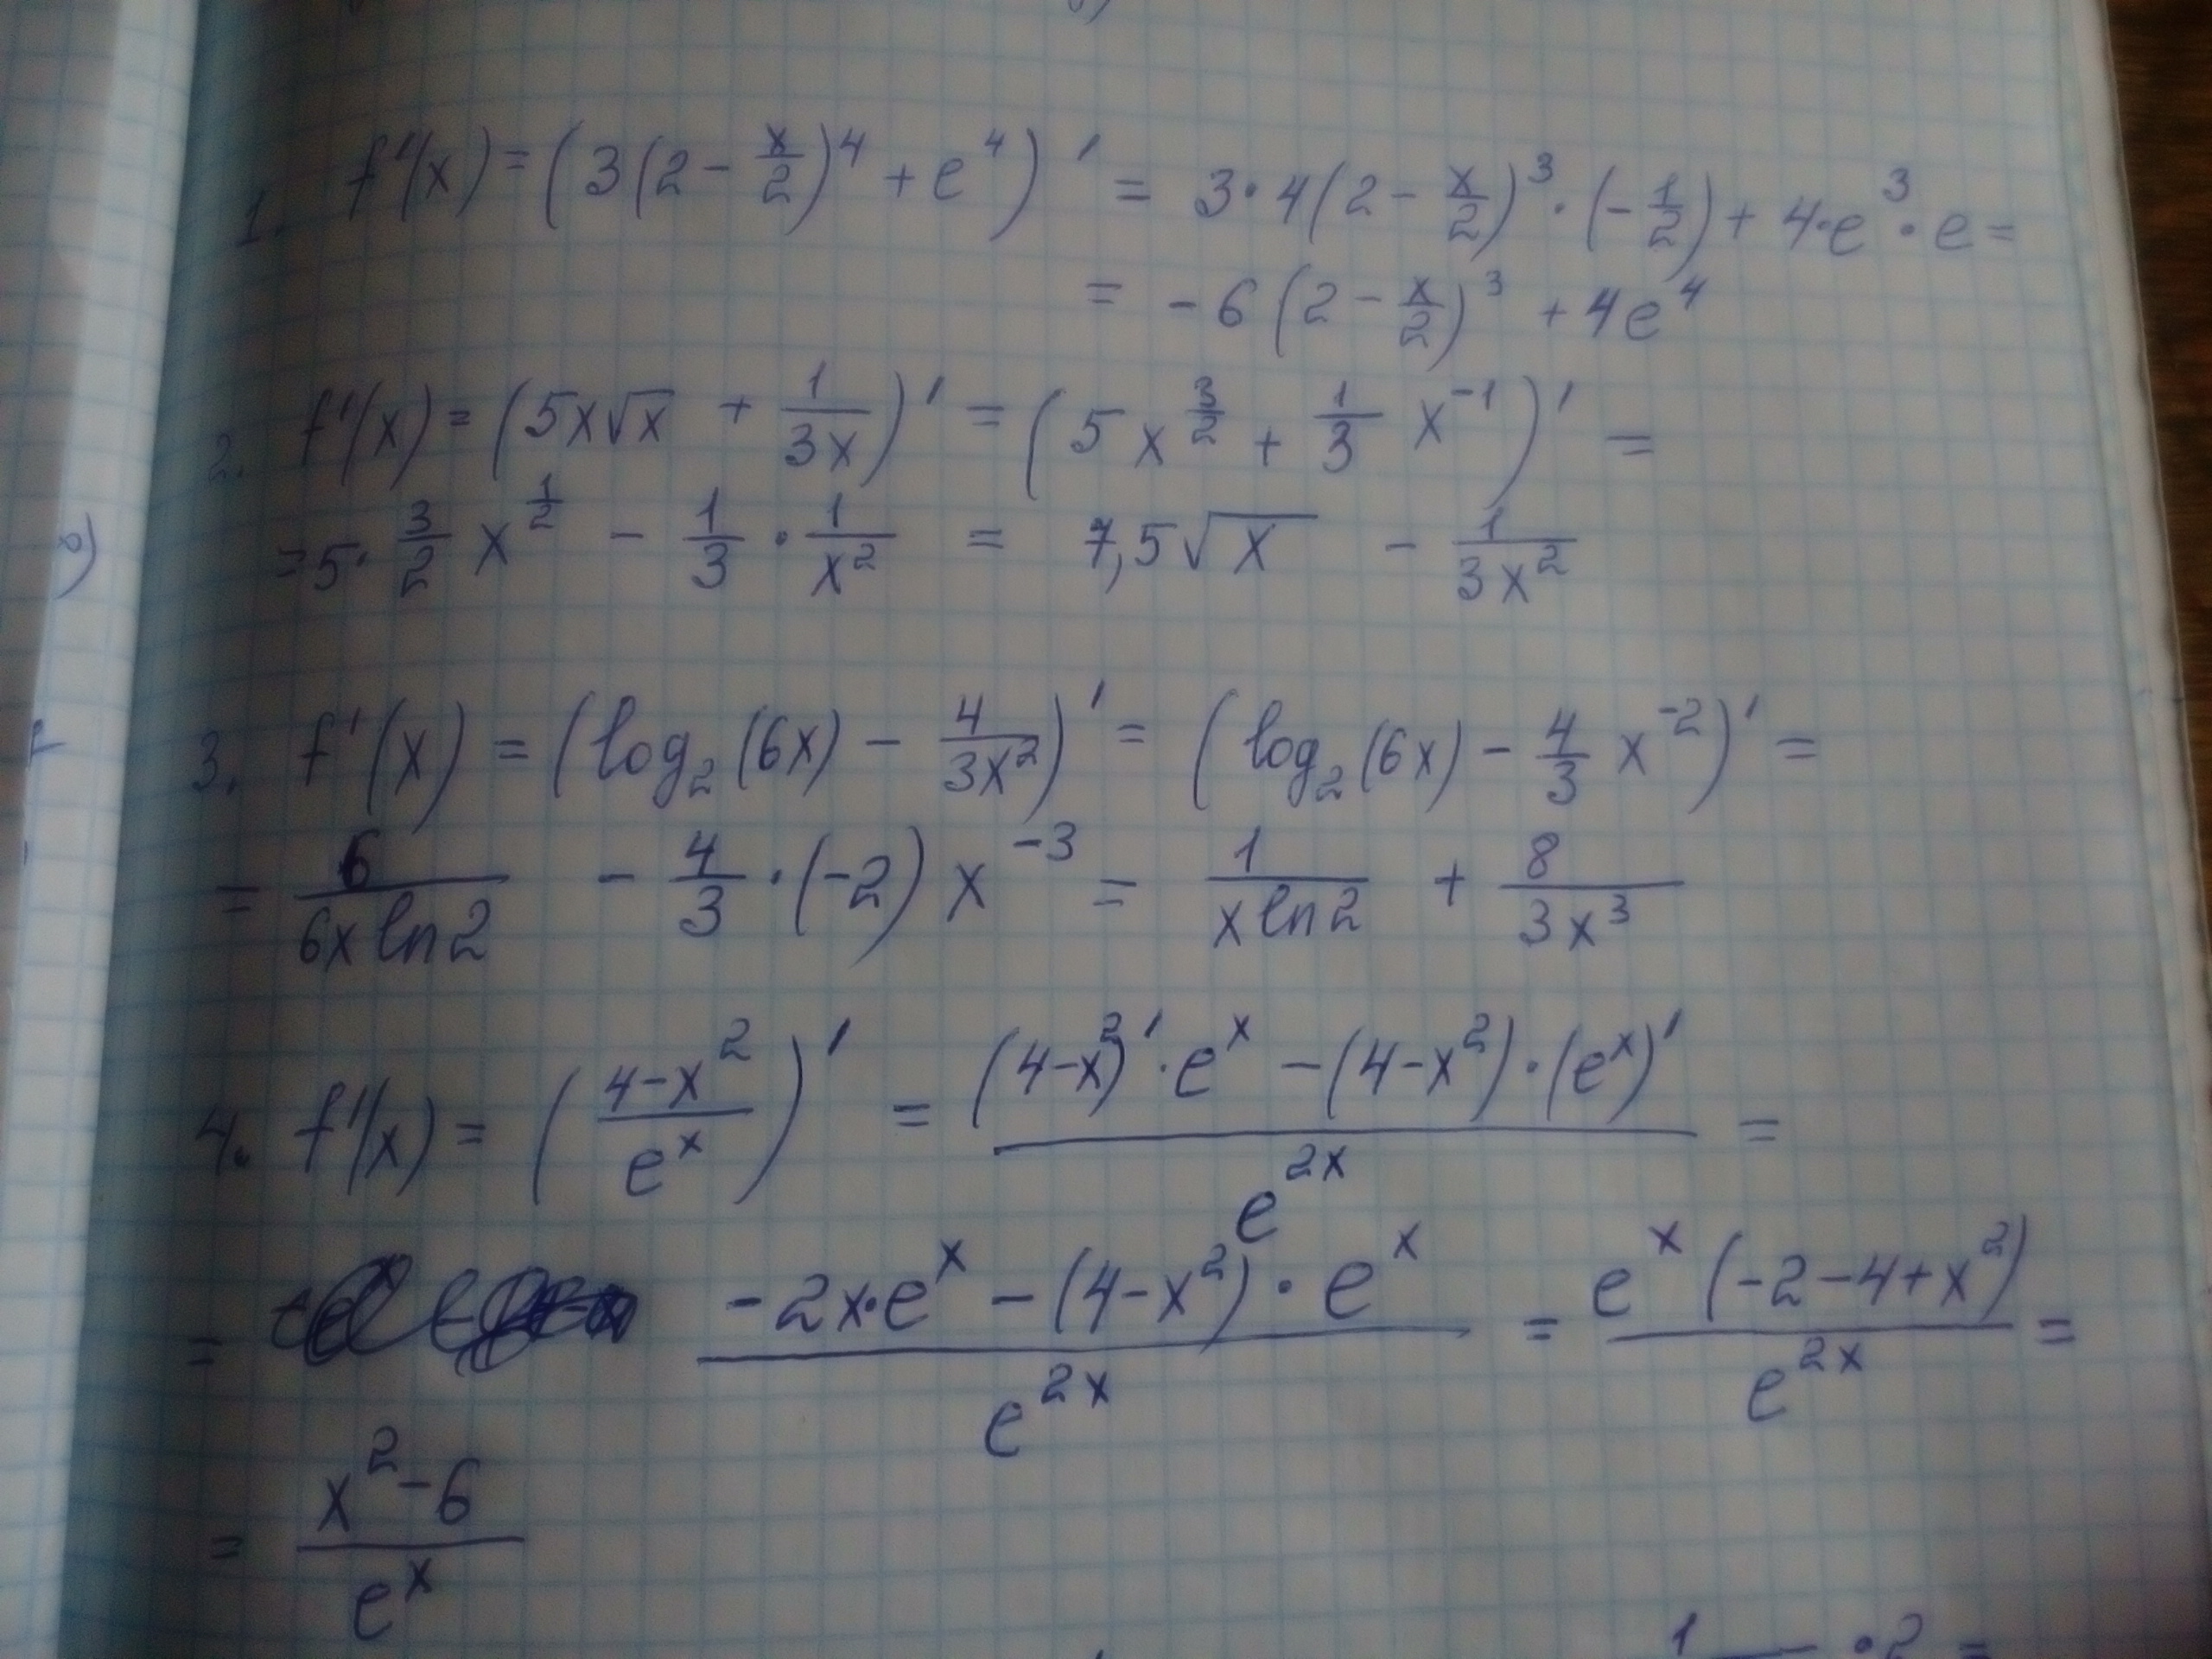 1. f'(x) = (3(2 - x/2)^4 + e^4)' = 3·4(2 - x/2)^3 · (-1/2) + 4·e^3 · e =
= -6(2 - x/2)^3 + 4e^4
2. f'(x) = (5x√x + 1/(3x))' = (5x^(3/2) + 1/3 x^(-1))' =
= 5· 3/2 x^(1/2) - 1/3 · 1/x^2 = 7,5√x - 1/(3x^2)
3. f'(x) = (log_2(6x) - 4/(3x^2))' = (log_2(6x) - 4/3 x^(-2))' =
= 6/(6x ln2) - 4/3 · (-2) x^(-3) = 1/(x ln2) + 8/(3x^3)
4. f'(x) = ((4-x^2)/e^x)' = ((4-x^2)' · e^x - (4-x^2) · (e^x)')/e^(2x) =
= (-2x·e^x - (4-x^2) · e^x)/e^(2x) = e^x(-2-4+x^2)/e^(2x) =
= (x^2-6)/e^x
1 · 2 =